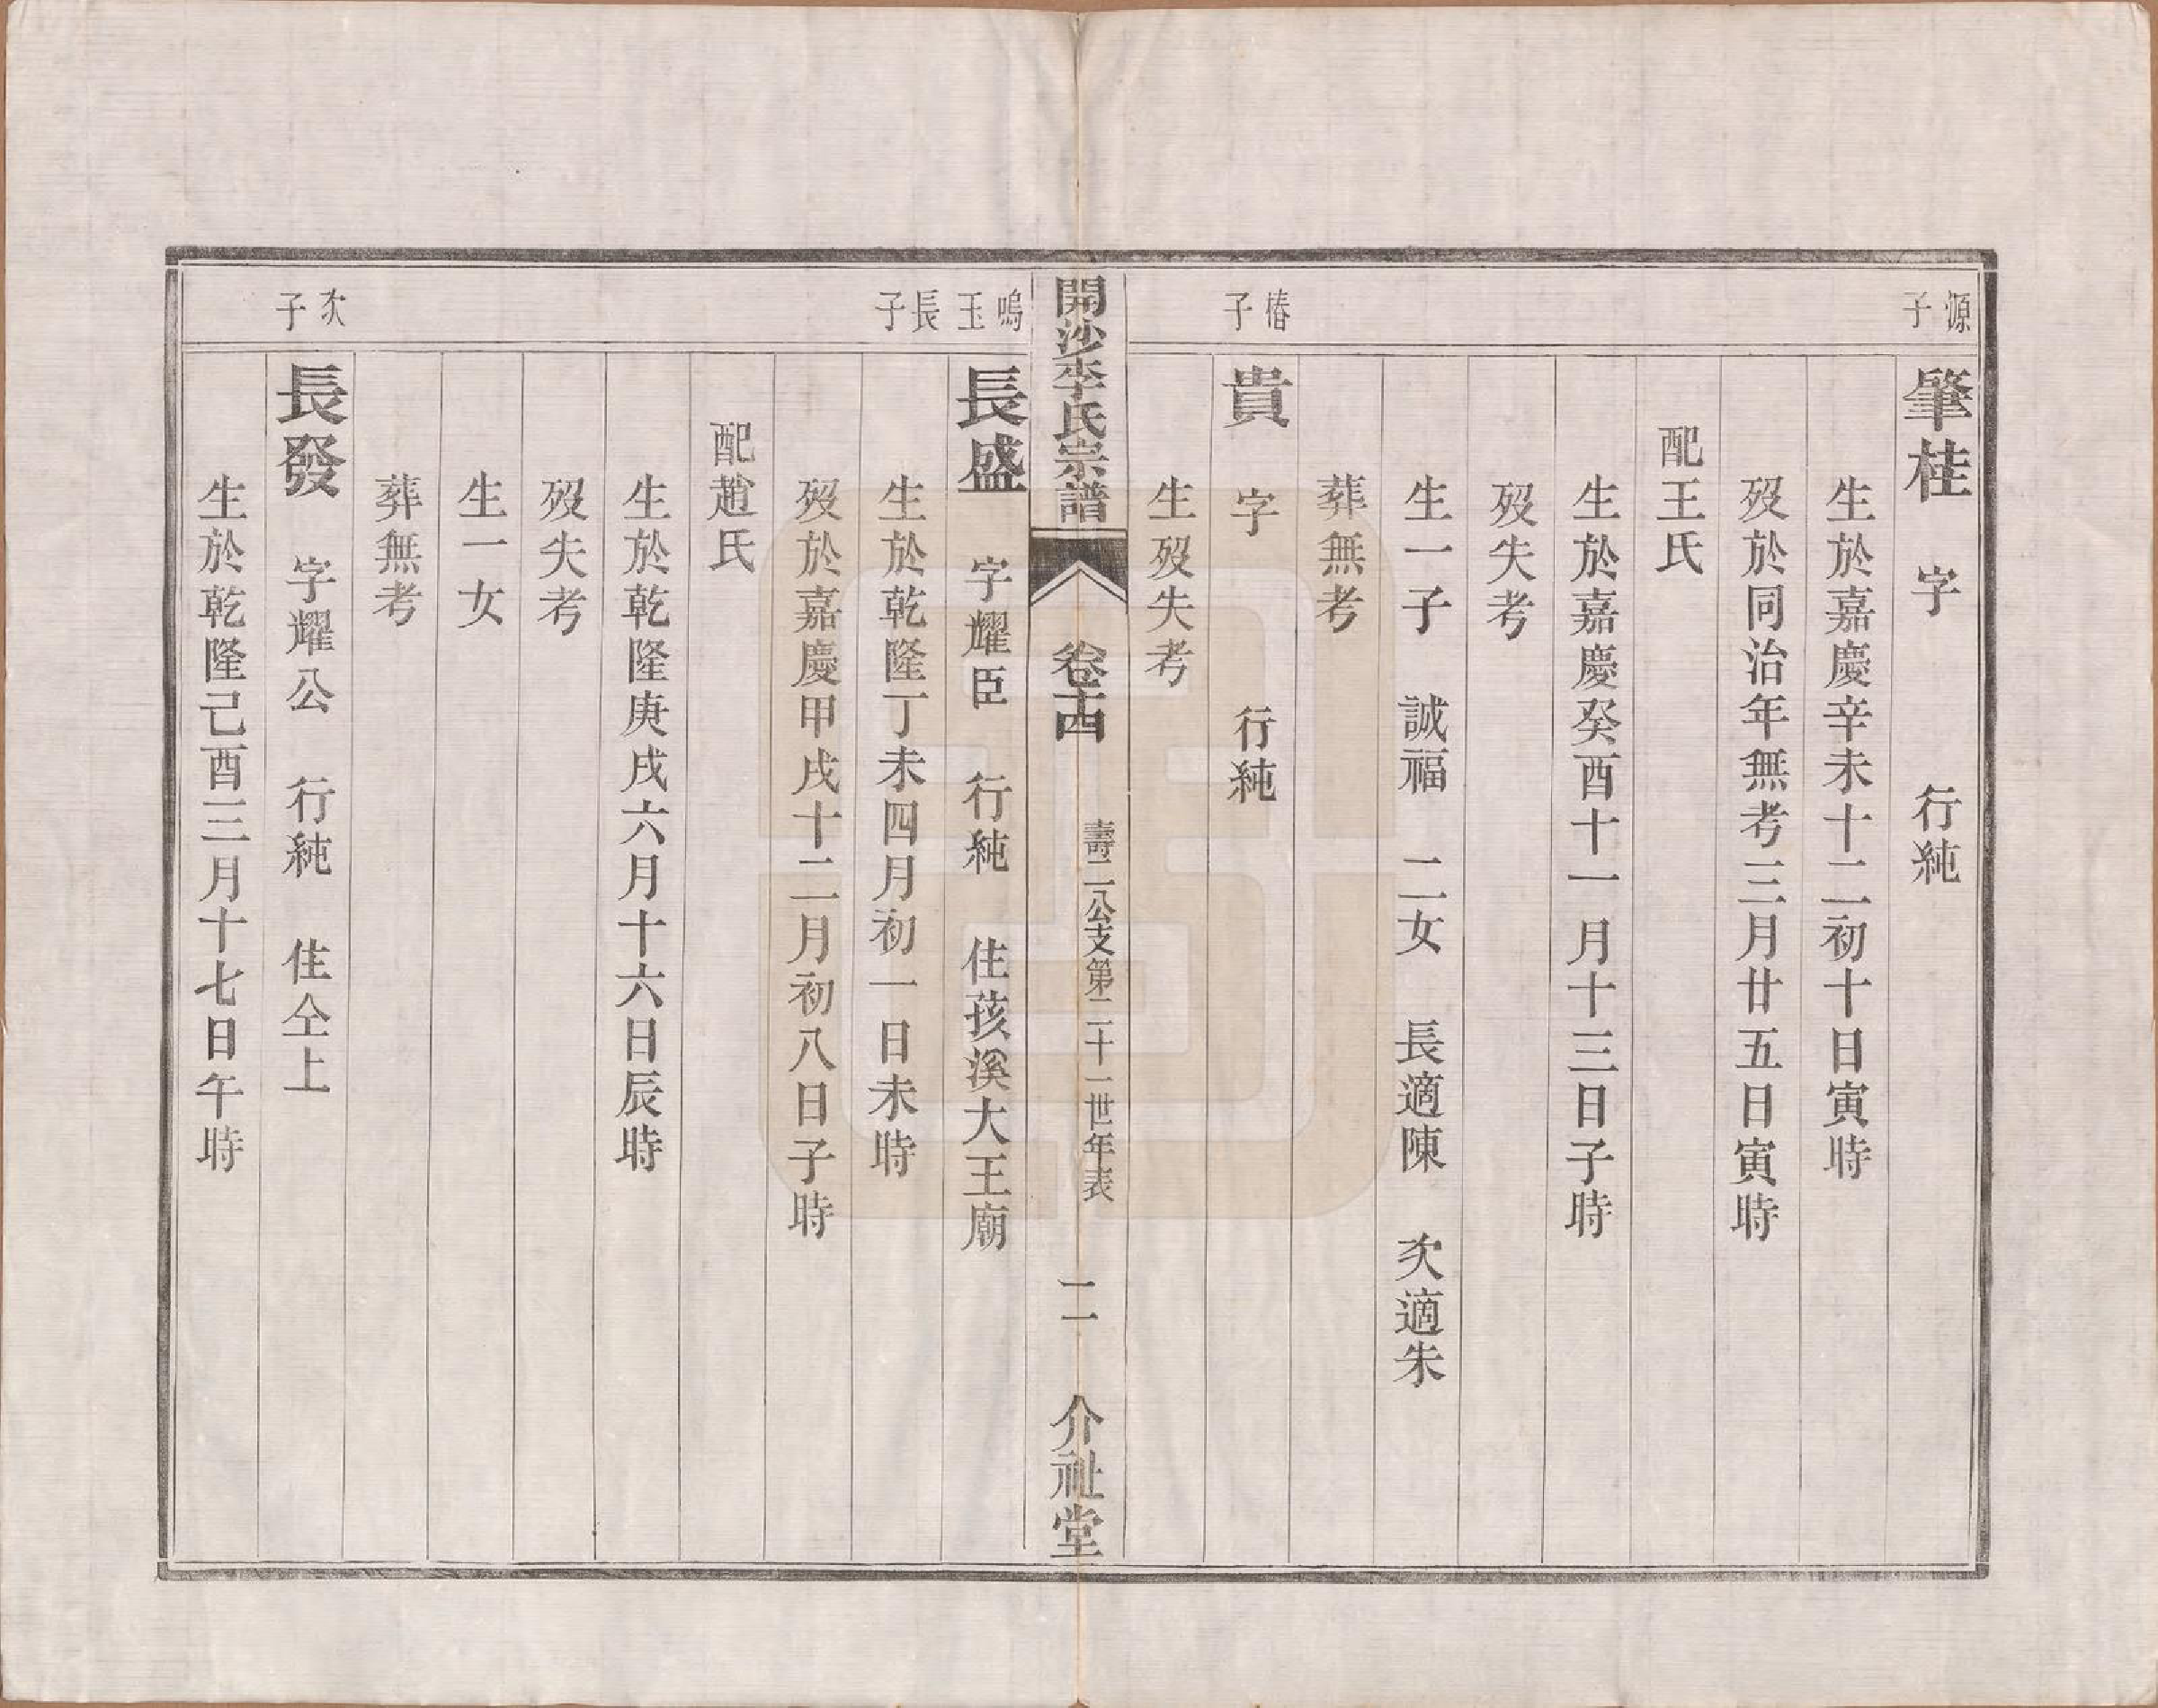 源子
肇桂　字　行純
生於嘉慶辛未十二初十日寅時
歿於同治年無考三月廿五日寅時
配王氏
生於嘉慶癸酉十一月十三日子時
歿失考
生一子　誠福　二女　長適陳　次適朱
葬無考
椿子
貴　字　行純
生歿失考
開沙李氏宗譜　卷十四　壽二公支第二十一世年表　二　介祉堂
鳴玉長子
長盛　字耀臣　行純　住孩溪大王廟
生於乾隆丁未四月初一日未時
歿於嘉慶甲戌十二月初八日子時
配趙氏
生於乾隆庚戌六月十六日辰時
歿失考
生一女
葬無考
次子
長發　字耀公　行純　住仝上
生於乾隆己酉三月十七日午時